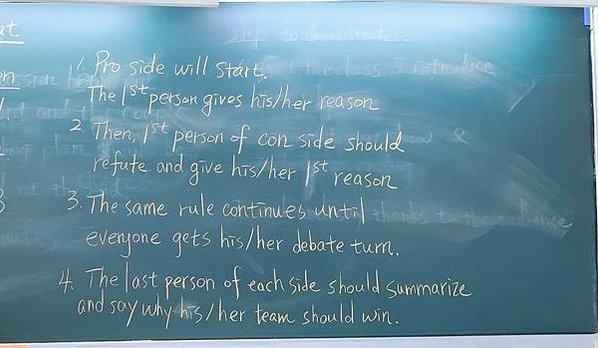 1. Pro side will start.
The 1st person gives his/her reason
2 Then, 1st person of con side should
refute and give his/her 1st reason
3. The same rule continues until
everyone gets his/her debate turn.
4. The last person of each side should summarize
and say why his/her team should win.